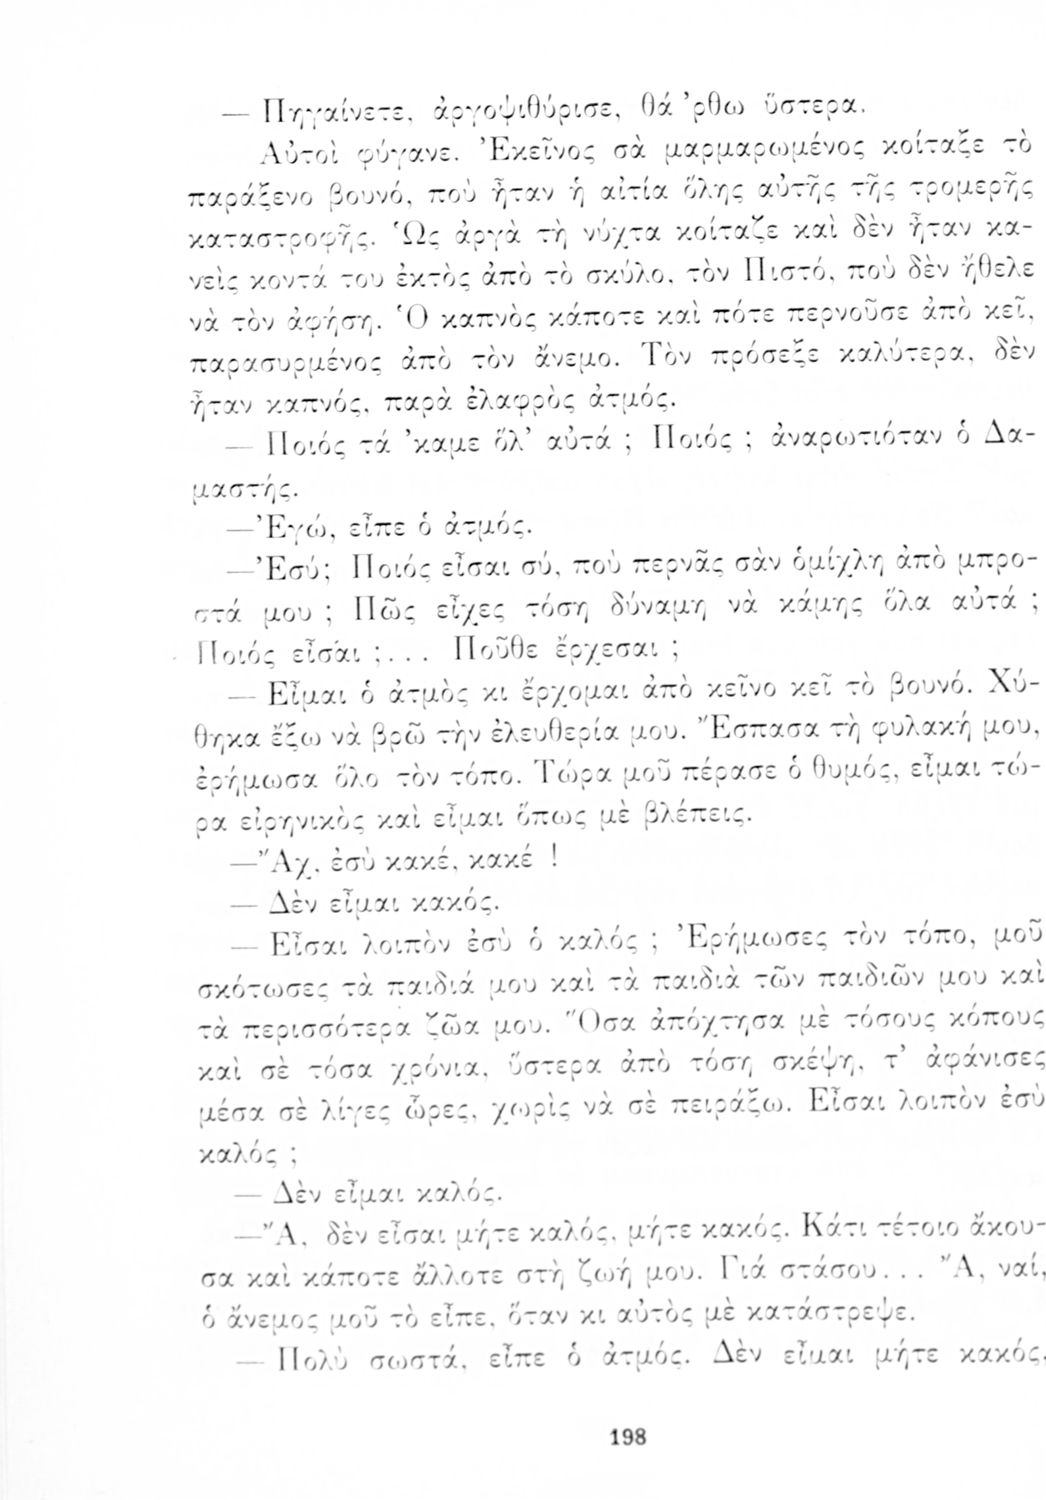 — Πηγαίνετε, ἀργοψιθύρισε, θά ᾿ρθω ὕστερα.
Αὐτοὶ φύγανε. Ἐκεῖνος σὰ μαρμαρωμένος κοίταξε τὸ
παράξενο βουνό, ποὺ ἦταν ἡ αἰτία ὅλης αὐτῆς τῆς τρομερῆς
καταστροφῆς. Ὡς ἀργὰ τὴ νύχτα κοίταζε καὶ δὲν ἦταν κα-
νεὶς κοντά του ἐκτὸς ἀπὸ τὸ σκύλο, τὸν Πιστό, ποὺ δὲν ἤθελε
νὰ τὸν ἀφήση. Ὁ καπνὸς κάποτε καὶ πότε περνοῦσε ἀπὸ κεῖ,
παρασυρμένος ἀπὸ τὸν ἄνεμο. Τὸν πρόσεξε καλύτερα, δὲν
ἦταν καπνός, παρὰ ἐλαφρὸς ἀτμός.
— Ποιός τά ᾿καμε ὅλ᾿ αὐτά ; Ποιός ; ἀναρωτιόταν ὁ Δα-
μαστής.
—Ἐγώ, εἶπε ὁ ἀτμός.
—Ἐσύ; Ποιός εἶσαι σύ, ποὺ περνᾶς σὰν ὁμίχλη ἀπὸ μπρο-
στά μου ; Πῶς εἶχες τόση δύναμη νὰ κάμης ὅλα αὐτά ;
Ποιός εἶσαι ;... Ποῦθε ἔρχεσαι ;
— Εἶμαι ὁ ἀτμὸς κι ἔρχομαι ἀπὸ κεῖνο κεῖ τὸ βουνό. Χύ-
θηκα ἔξω νὰ βρῶ τὴν ἐλευθερία μου. Ἔσπασα τὴ φυλακή μου,
ἐρήμωσα ὅλο τὸν τόπο. Τώρα μοῦ πέρασε ὁ θυμός, εἶμαι τώ-
ρα εἰρηνικὸς καὶ εἶμαι ὅπως μὲ βλέπεις.
—Ἄχ, ἐσὺ κακέ, κακέ !
— Δὲν εἶμαι κακός.
— Εἶσαι λοιπὸν ἐσὺ ὁ καλός ; Ἐρήμωσες τὸν τόπο, μοῦ
σκότωσες τὰ παιδιά μου καὶ τὰ παιδιὰ τῶν παιδιῶν μου καὶ
τὰ περισσότερα ζῶα μου. Ὅσα ἀπόχτησα μὲ τόσους κόπους
καὶ σὲ τόσα χρόνια, ὕστερα ἀπὸ τόση σκέψη, τ᾿ ἀφάνισες
μέσα σὲ λίγες ὧρες, χωρὶς νὰ σὲ πειράξω. Εἶσαι λοιπὸν ἐσὺ
καλός ;
— Δὲν εἶμαι καλός.
—Ἄ, δὲν εἶσαι μήτε καλός, μήτε κακός. Κάτι τέτοιο ἄκου-
σα καὶ κάποτε ἄλλοτε στὴ ζωή μου. Γιά στάσου... Ἄ, ναί,
ὁ ἄνεμος μοῦ τὸ εἶπε, ὅταν κι αὐτὸς μὲ κατάστρεψε.
— Πολὺ σωστά, εἶπε ὁ ἀτμός. Δὲν εἶμαι μήτε κακός,
198